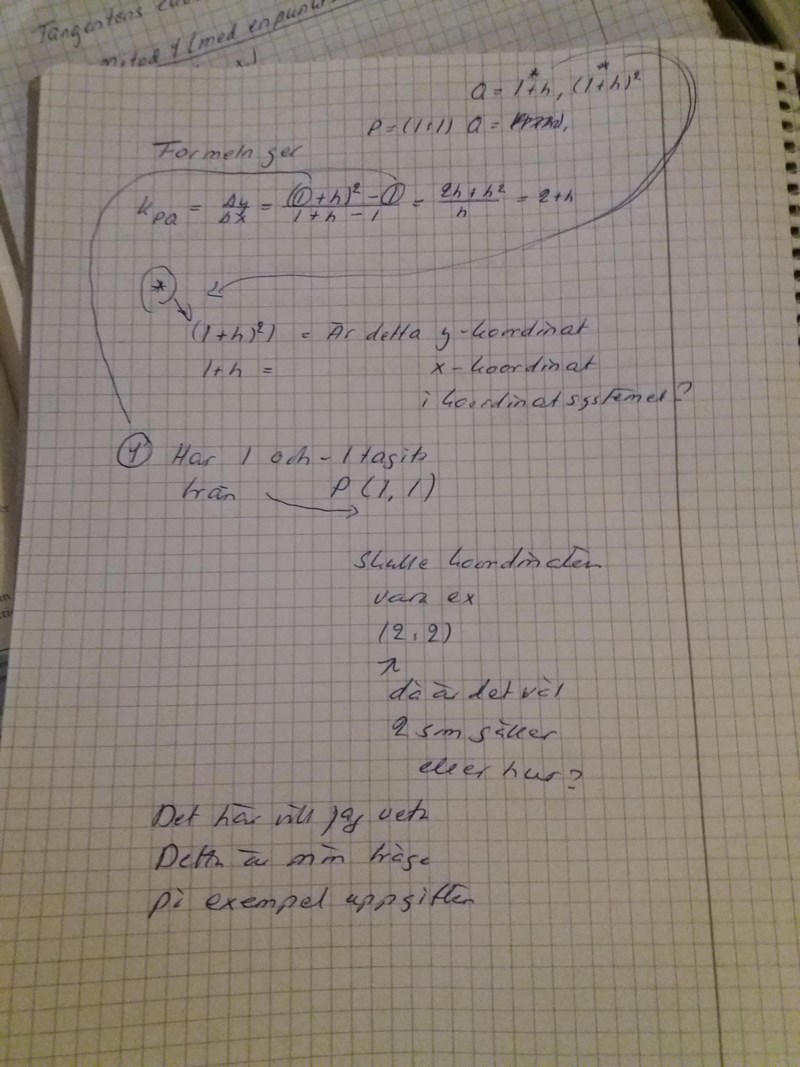 Tangentens
metod 1 (med en punkt
Q = 1+h, (1+h)²
P = (1,1) Q =
Formeln ger
k_PQ = Δy/Δx = ((1+h)² - 1)/(1+h-1) = (2h+h²)/h = 2+h
*
(1+h)²) = Är detta y-koordinat
1+h = x-koordinat
i koordinatsystemet?
1 Har 1 och -1 tagits
från P(1,1)
Skulle koordinaten
vara ex
(2,2)
då är det väl
2 som gäller
eller hur?
Det här vill jag veta
Detta är min fråga
på exempel uppgiften